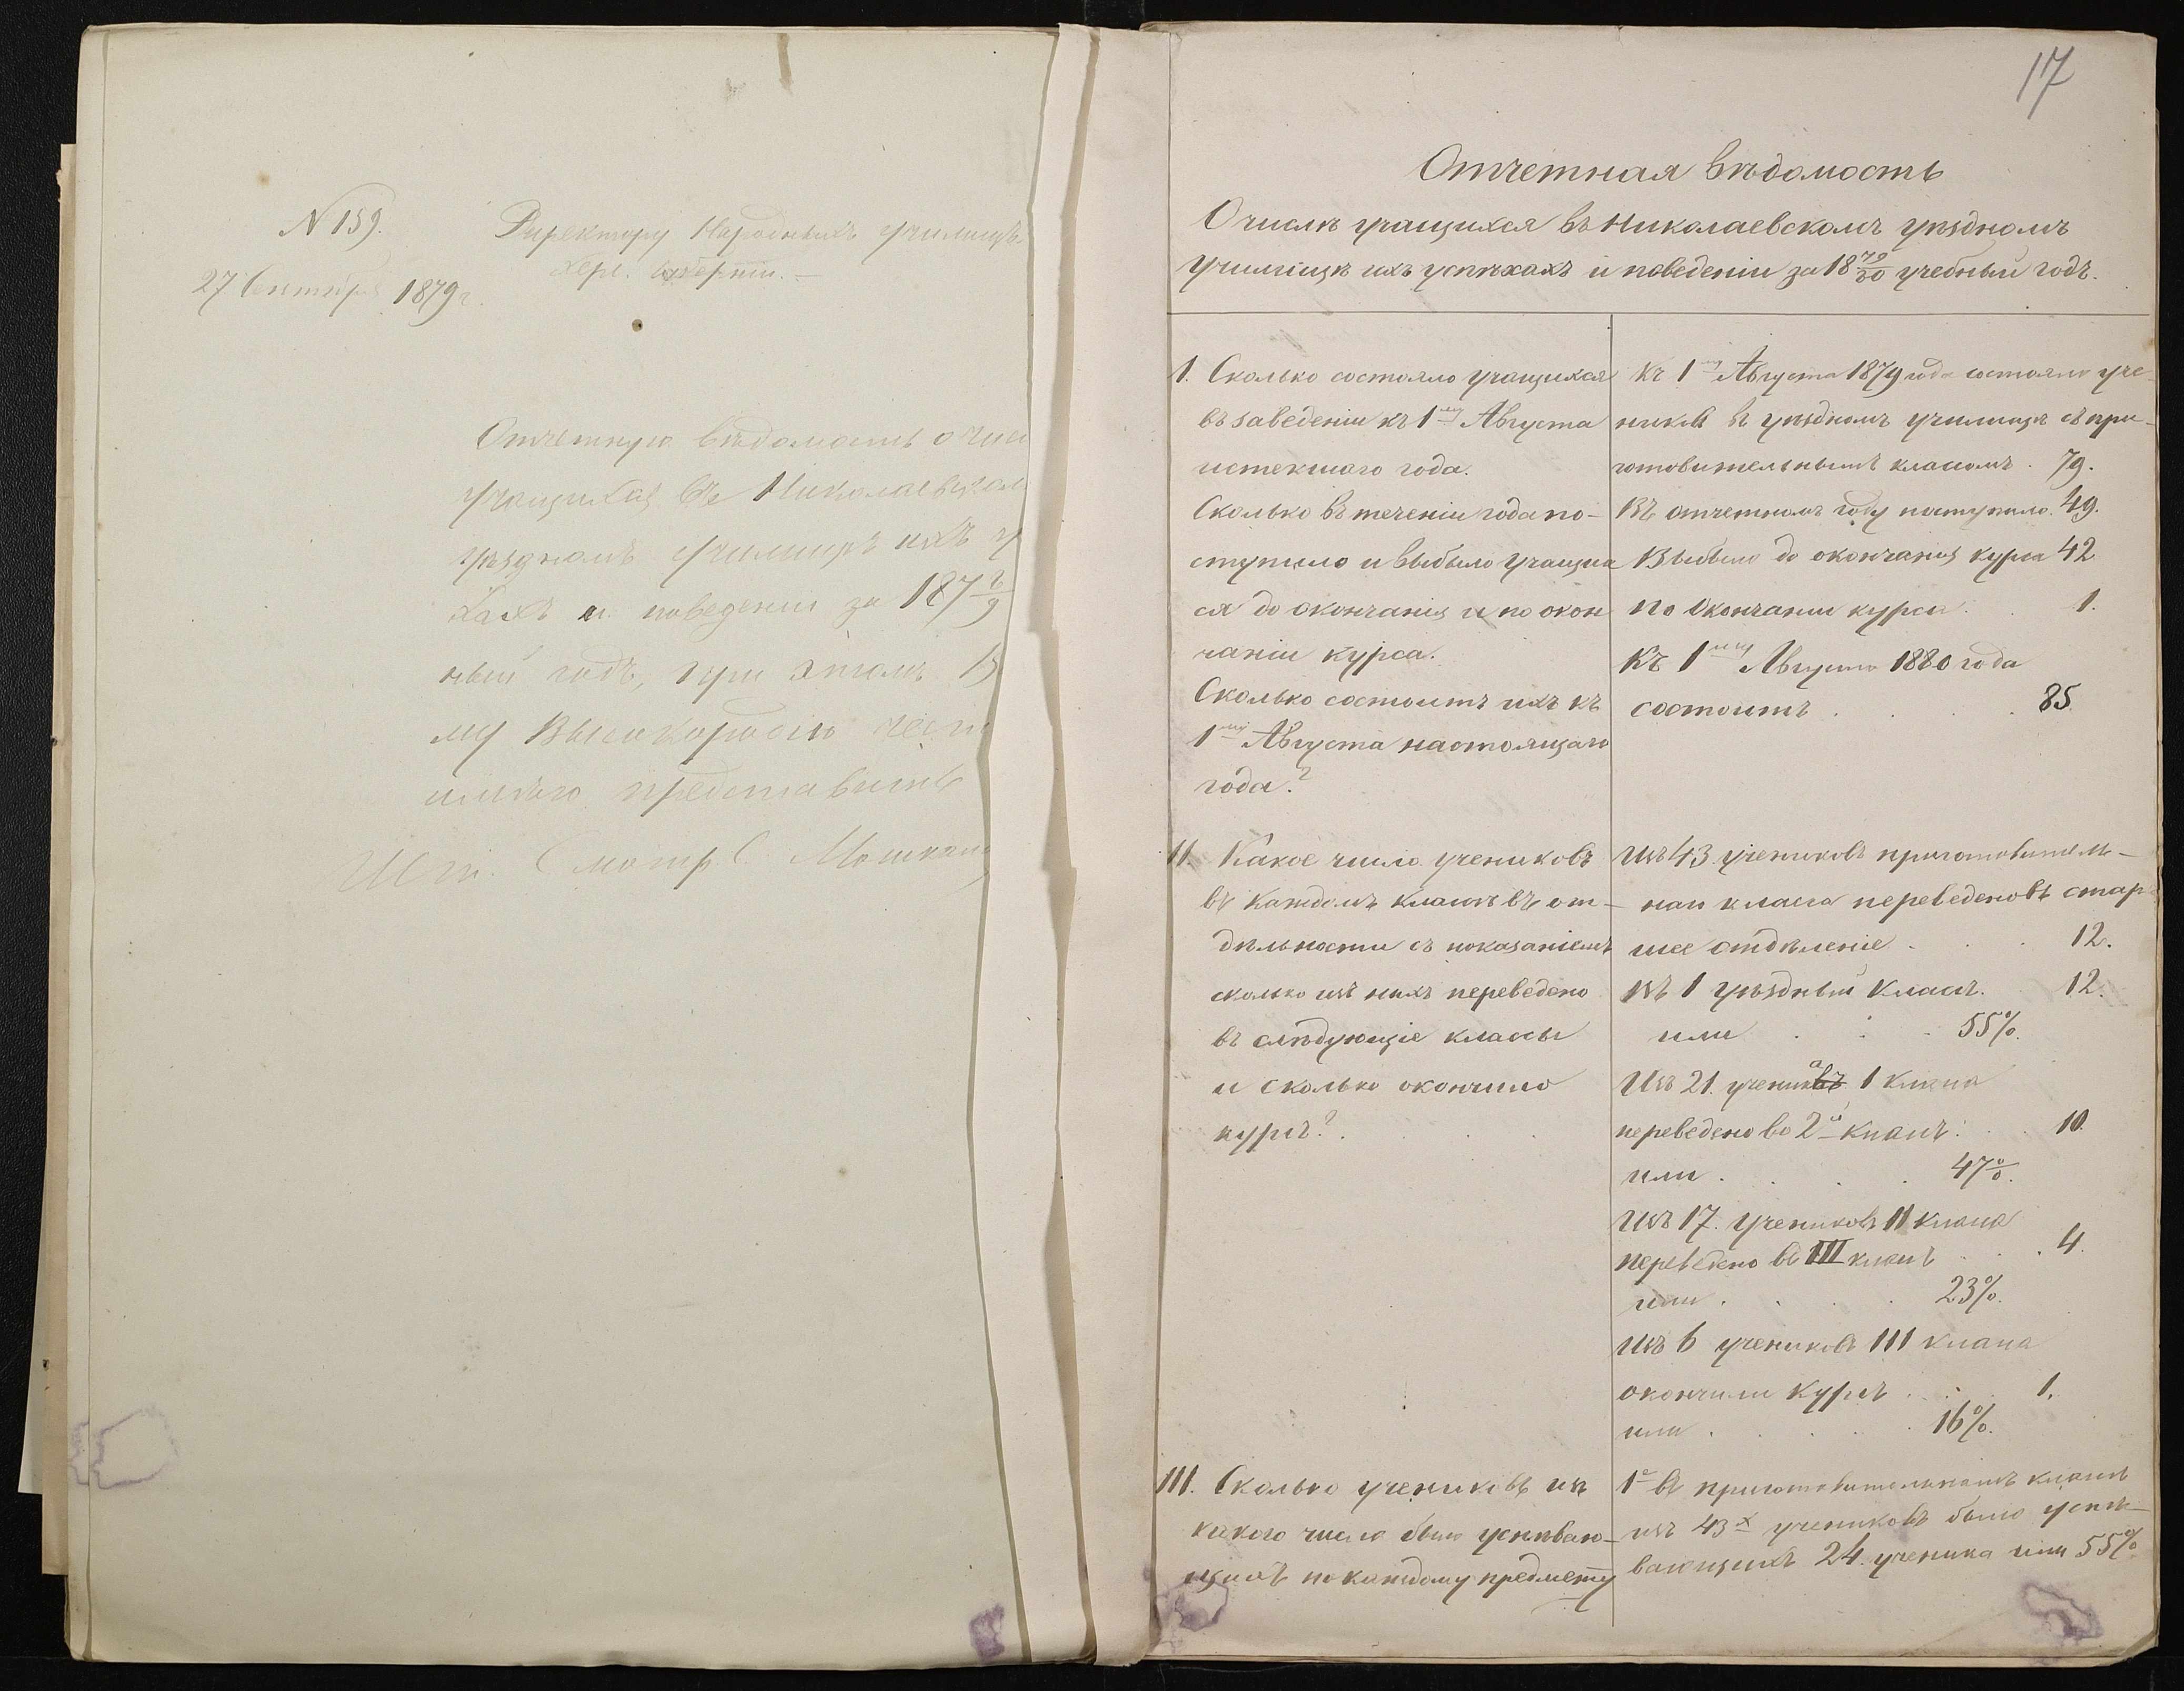 N 159.
27 Сентября 1879 г.
Директору Народныхъ училищъ
Хер. губерніи. —
Отчетную вѣдомость о чис
учащихся въ Николаевском
уѣздномъ училищѣ ихъ у
хахъ и поведеніи за 187 8/9
ный годъ, при этомъ В
му Высокородію чест
имѣю представить
Шт. Смотр.
17
Отчетная вѣдомость
О числѣ учащихся въ Николаевскомъ уѣздномъ
училищѣ ихъ успѣхахъ и поведеніи за 18 79/80 учебный годъ.
1. Сколько состояло учащихся
въ заведеніи къ 1му Августа
истекшаго года.
Сколько въ теченіи года по-
ступило и выбыло учащих
ся до окончанія и по окон
чаніи курса.
Сколько состоитъ ихъ къ
1му Августа настоящаго
года?
Къ 1му Августа 1879 года состояло уче-
никовъ въ уѣздномъ училищѣ съ при-
готовительнымъ класомъ . 79.
Въ отчетномъ году поступило. 49.
Выбыло до окончанія курса 42
По окончаніи курса . . 1.
Къ 1му Августа 1880 года
состоитъ . . . . 85
II. Какое число учениковъ
въ каждомъ класѣ въ от-
дѣльности съ показаніемъ
сколько изъ нихъ переведено
въ слѣдующіе классы
и сколько окончило
курсъ? . . .
Изъ 43 учениковъ приготовитель-
наго класса переведено въ стар
шее отдѣленіе . . . 12.
Въ 1 уѣздный Класъ. 12.
или . . . 55%.
Изъ 21. ученика 1 Класса
переведено во 2й Класъ . . 10.
или . . . . 47%.
Изъ 17. Учениковъ II класа
переведено въ III класъ . . . 4.
или . . . . 23%.
Изъ 6 учениковъ III класа
окончили Курсъ . . . 1.
или . . . . . 16%.
III. Сколько учениковъ изъ
какого числа было успѣваю-
щихъ по каждому предмету
1е въ приготовительномъ класѣ
изъ 43х учениковъ было успѣ-
вающихъ 24. ученика или 55%